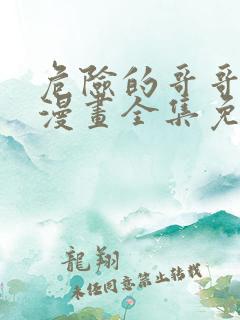 危險的哥哥
漫畫全集免
龍翔
未经同意禁止转载